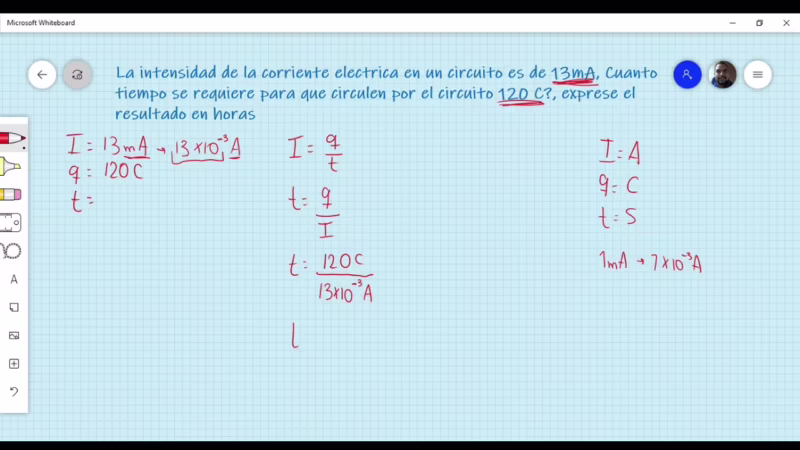 Microsoft Whiteboard
La intensidad de la corriente electrica en un circuito es de 13mA, Cuanto
tiempo se requiere para que circulen por el circuito 120 C?, exprese el
resultado en horas
I = 13mA → 13×10⁻³ A
q = 120C
t =
I = q/t
t = q/I
t = 120C / 13×10⁻³A
I = A
q = C
t = S
1mA → 1×10⁻³A
A